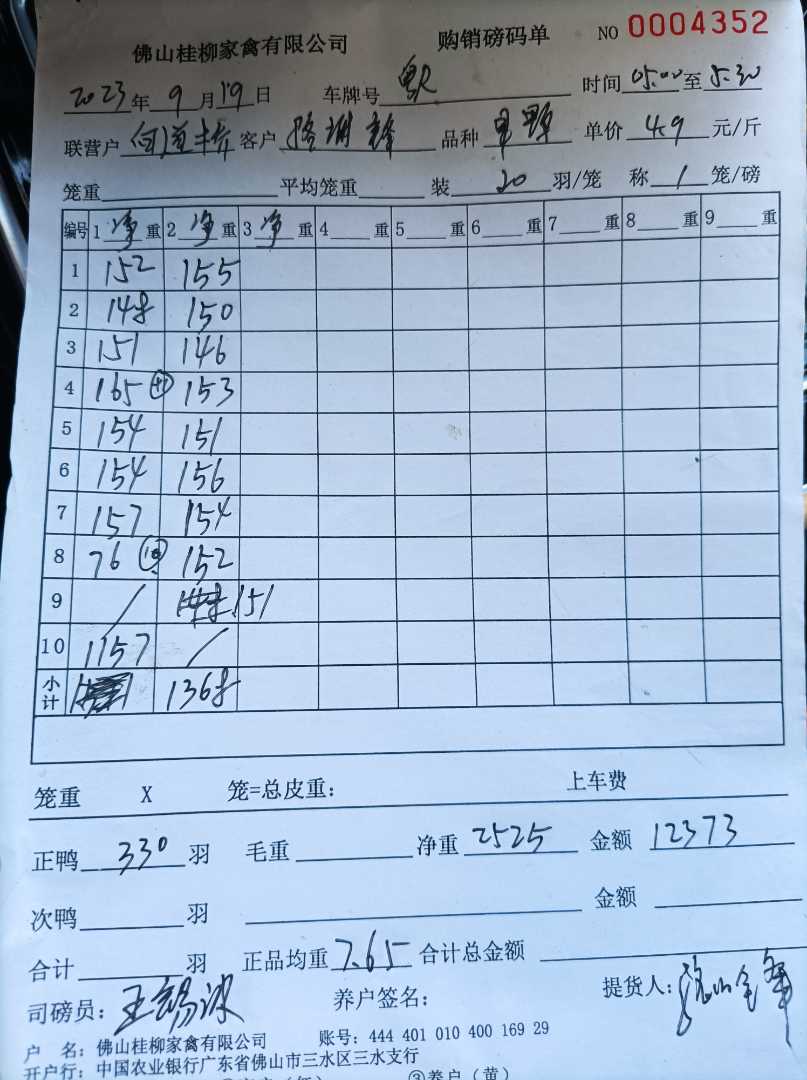 佛山桂柳家禽有限公司 购销磅码单 NO 0004352
2023年9月19日 车牌号 时间05:00至5:30
联营户 客户 品种 单价4.9元/斤
笼重 平均笼重 装20羽/笼 称1笼/磅
编号 1净重 2净重 3净重 4重 5重 6重 7重 8重 9重
1 152 155
2 148 150
3 151 146
4 165 153
5 154 151
6 154 156
7 157 154
8 76 152
9 151
10 1157
小计 1368
笼重 X 笼=总皮重: 上车费
正鸭330羽 毛重 净重2525 金额12373
次鸭 羽 金额
合计 羽 正品均重7.65 合计总金额
司磅员: 王 养户签名: 提货人:
户 名: 佛山桂柳家禽有限公司 账号: 444 401 010 400 169 29
开户行: 中国农业银行广东省佛山市三水区三水支行
③养户（黄）